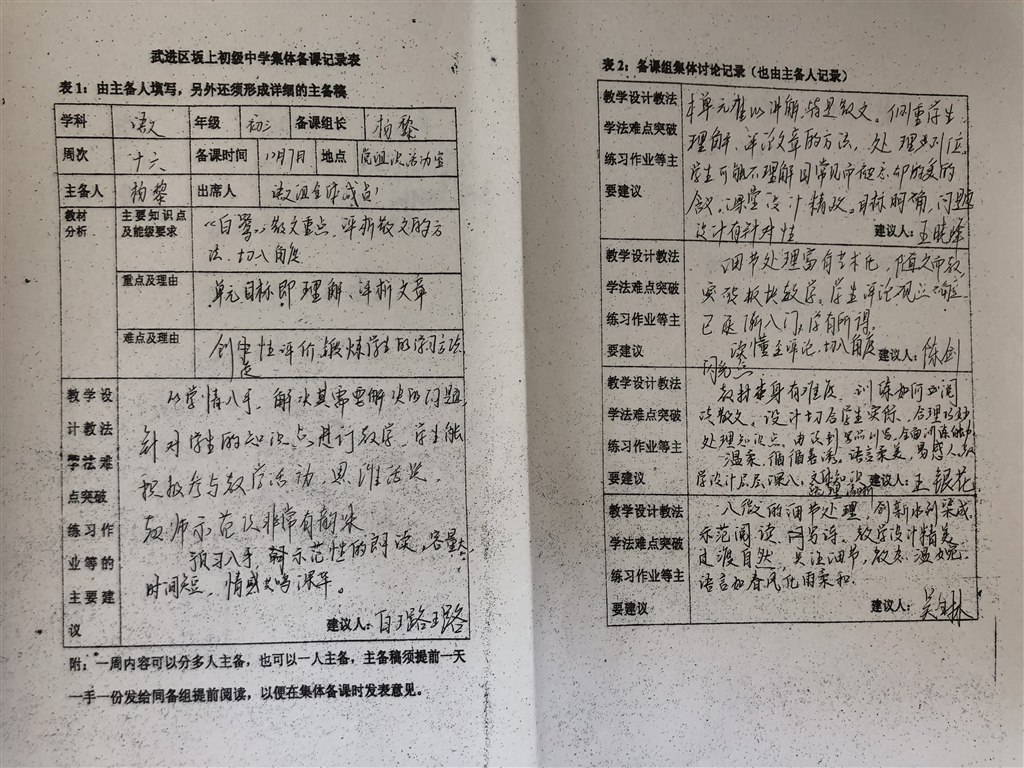 武进区坂上初级中学集体备课记录表
表1：由主备人填写，另外还须形成详细的主备稿
学科 语文 年级 初三 备课组长 杨黎
周次 十六 备课时间 12月7日 地点
主备人 杨黎 出席人 语文组全体成员
教材分析 主要知识点及能级要求
《白鹭》散文重点，评析散文的方
法、切入角度
重点及理由
单元目标即理解、评析文章
难点及理由
创造性评价，锻炼学生的学习方法
教学设计教法学法难点突破练习作业等的主要建议
从学情入手，解决其需要解决的问题
针对学生的知识点进行教学，学生能
积极参与教学活动，思维活跃
教师示范法非常有韵味
预习入手 示范性的朗读，容量大
时间短，情感共鸣课年。
建议人：白璐璐
附：一周内容可以分多人主备，也可以一人主备，主备稿须提前一天
一手一份发给同备组提前阅读，以便在集体备课时发表意见。
表2：备课组集体讨论记录（也由主备人记录）
教学设计教法学法难点突破练习作业等主要建议
本单元难以讲解，特是散文。侧重学生
理解、评论文章的方法，处理到位。
学生可能不理解
含义。课堂设计精致。目标明确，问题
设计有针对性
建议人：
教学设计教法学法难点突破练习作业等主要建议
细节处理富有艺术化，随文而教
突破板块教学。学生评论观点
已是渐入门，学有所得。
读懂主评论，切入角度
闪光点
建议人：陈剑
教学设计教法学法难点突破练习作业等主要建议
教材本身有难度，训练如何阅
读散文。设计切合学生实际，合理巧妙
处理知识点，由读到写的训写，全面训练能力
温柔，循循善诱。语言柔美，易感人，教
学设计层层深入，
建议人：王银花
教学设计教法学法难点突破练习作业等主要建议
八微的细节处理，创新水到渠成
示范阅读、仿写诗。教学设计精美
过渡自然，关注细节，教态温婉
语言如春风化雨柔和。
建议人：吴玉林